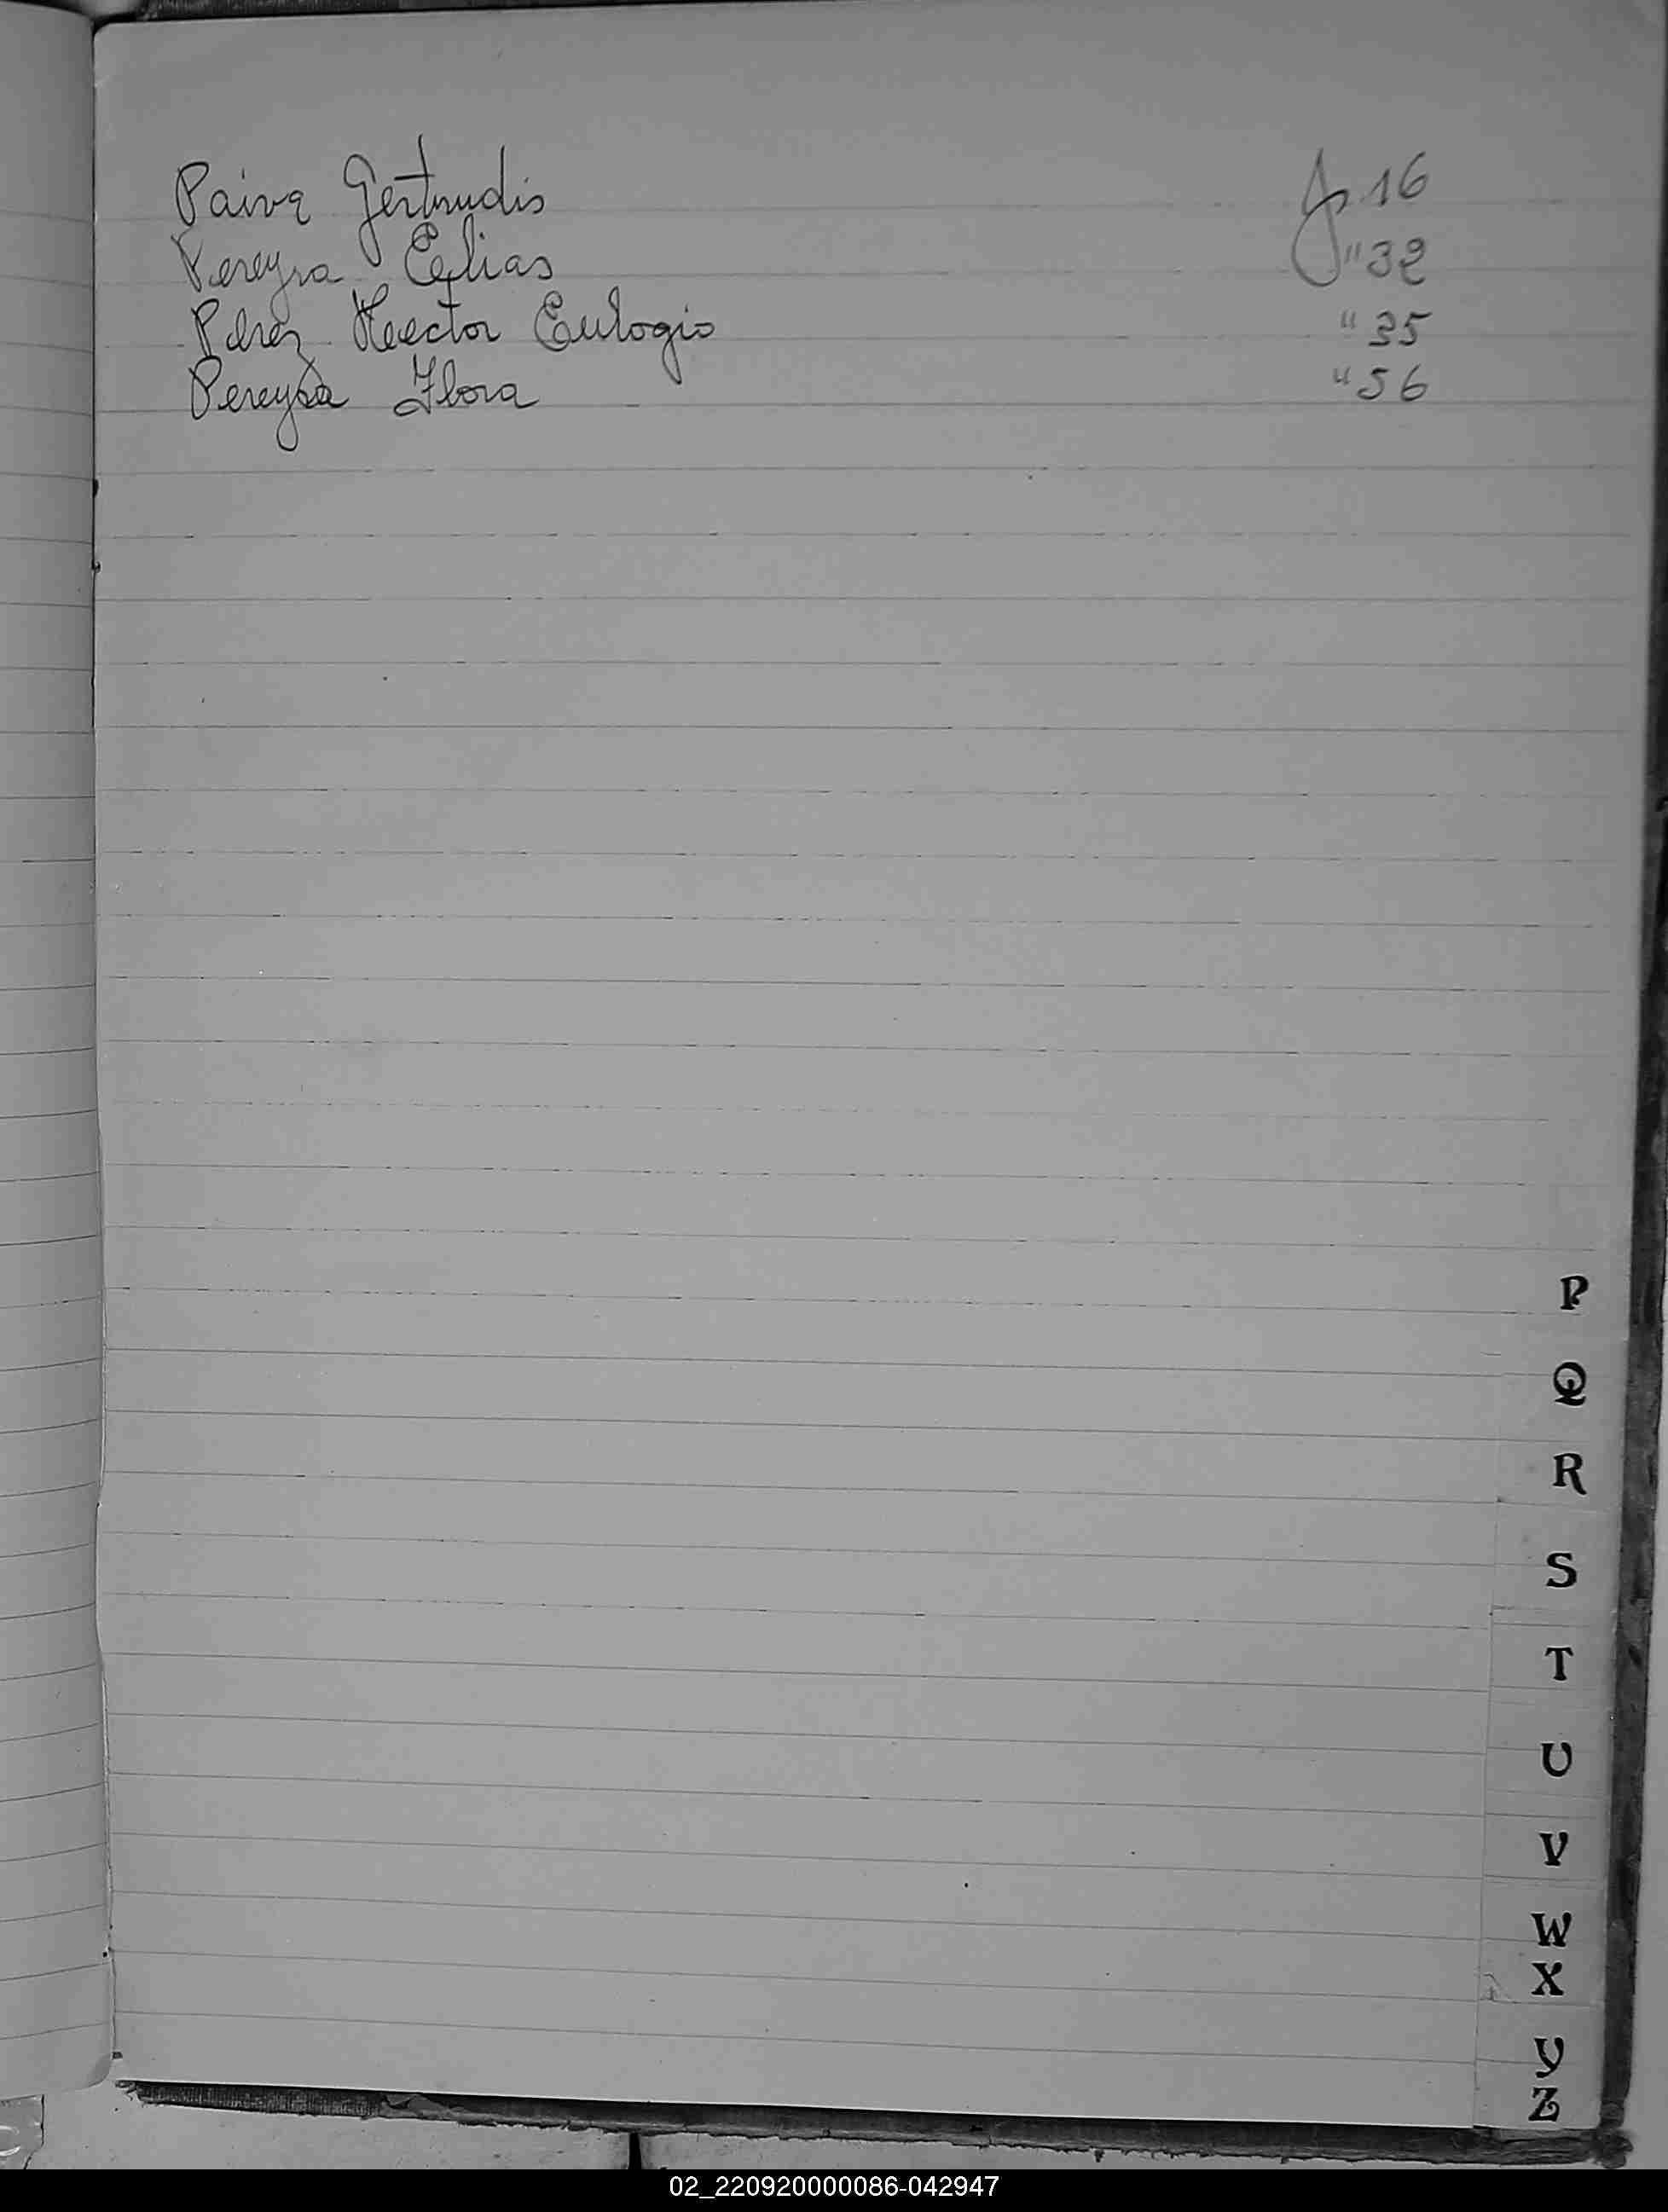 Paiva Gertrudis fs 16
Pereyra Elias " 32
Perez Hector Eulogio " 35
Pereyra Flora " 56
P
Q
R
S
T
U
V
W
X
Y
Z
02_220920000086-042947